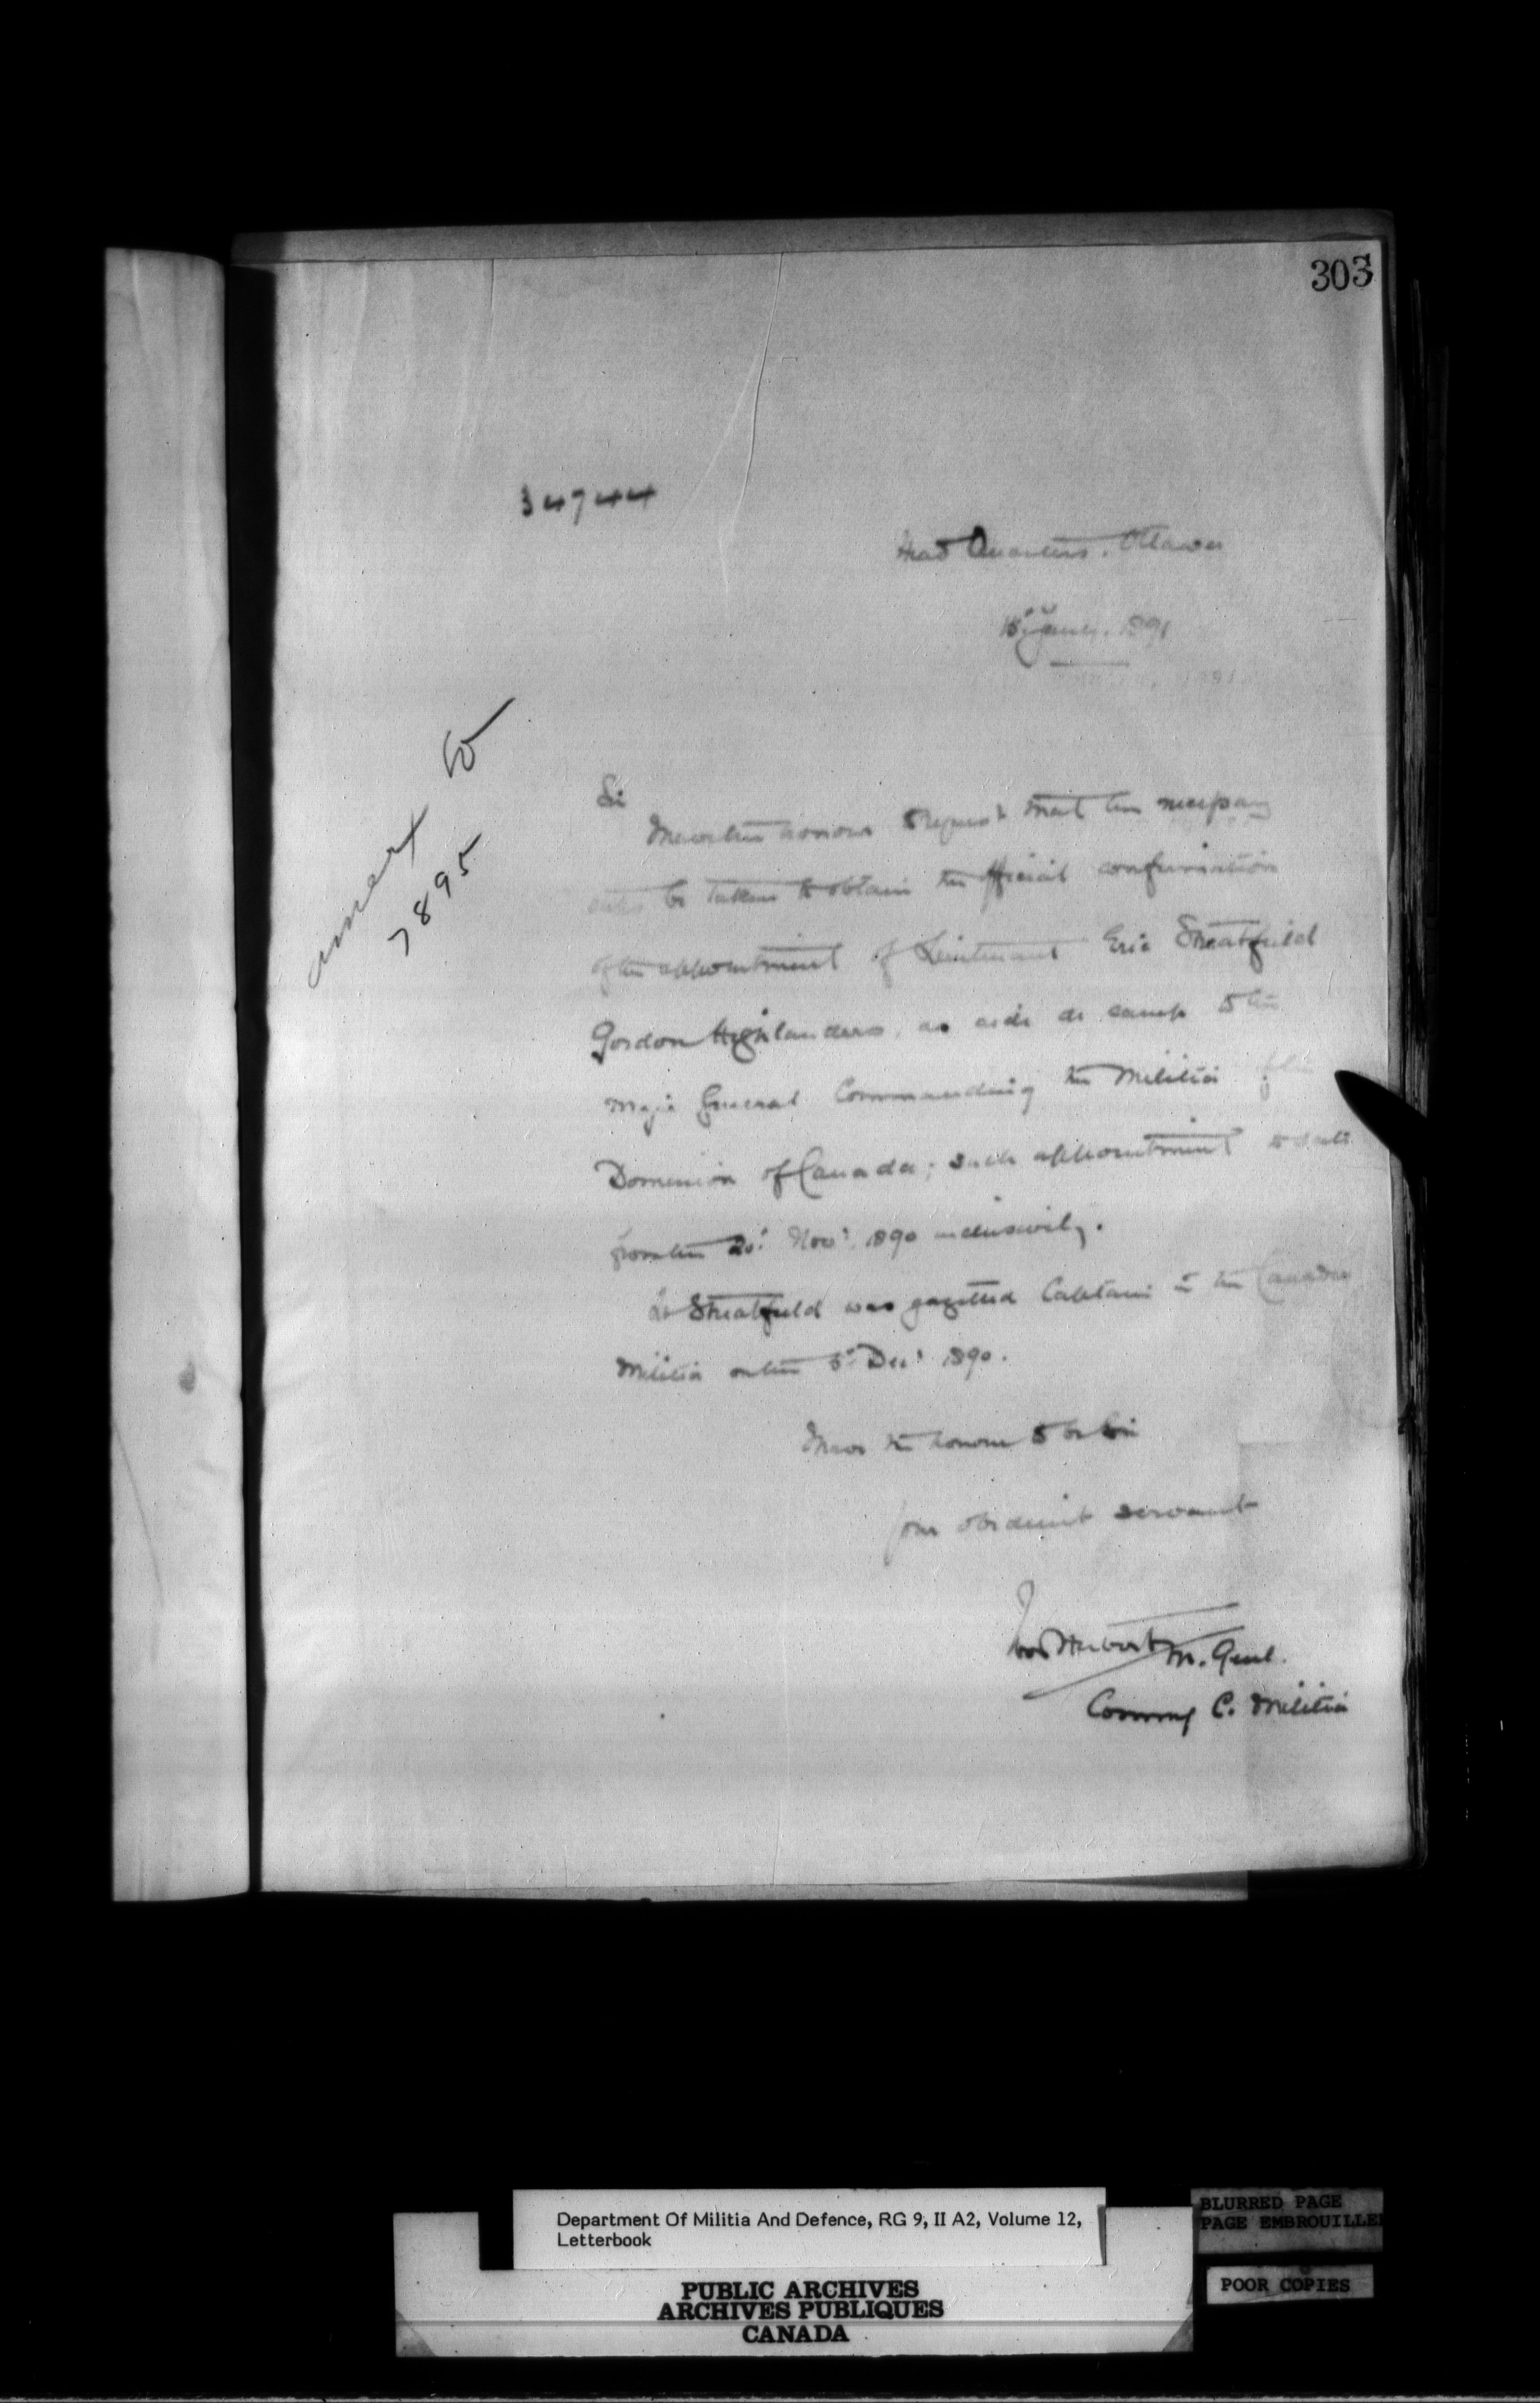 303
34744
Head Quarters, Ottawa
15th Jany. 1891
annex to
7895
Sir
I have the honour to request that the necessary
steps be taken to obtain the official confirmation
of the appointment of Lieutenant Eric Streatfeild
Gordon Highlanders, as aide de camp to the
Major General Commanding the Militia of the
Dominion of Canada; such appointment to date
from the 20th Novr. 1890 inclusively.
Lt Streatfeild was gazetted Captain in the Canadian
Militia on the 5th Decr 1890.
I have the honour to be Sir
Your obedient servant
Ivor Herbert M. Genl.
Commg C. Militia
Department Of Militia And Defence, RG 9, II A2, Volume 12,
Letterbook
BLURRED PAGE
PAGE EMBROUILLEE
POOR COPIES
PUBLIC ARCHIVES
ARCHIVES PUBLIQUES
CANADA